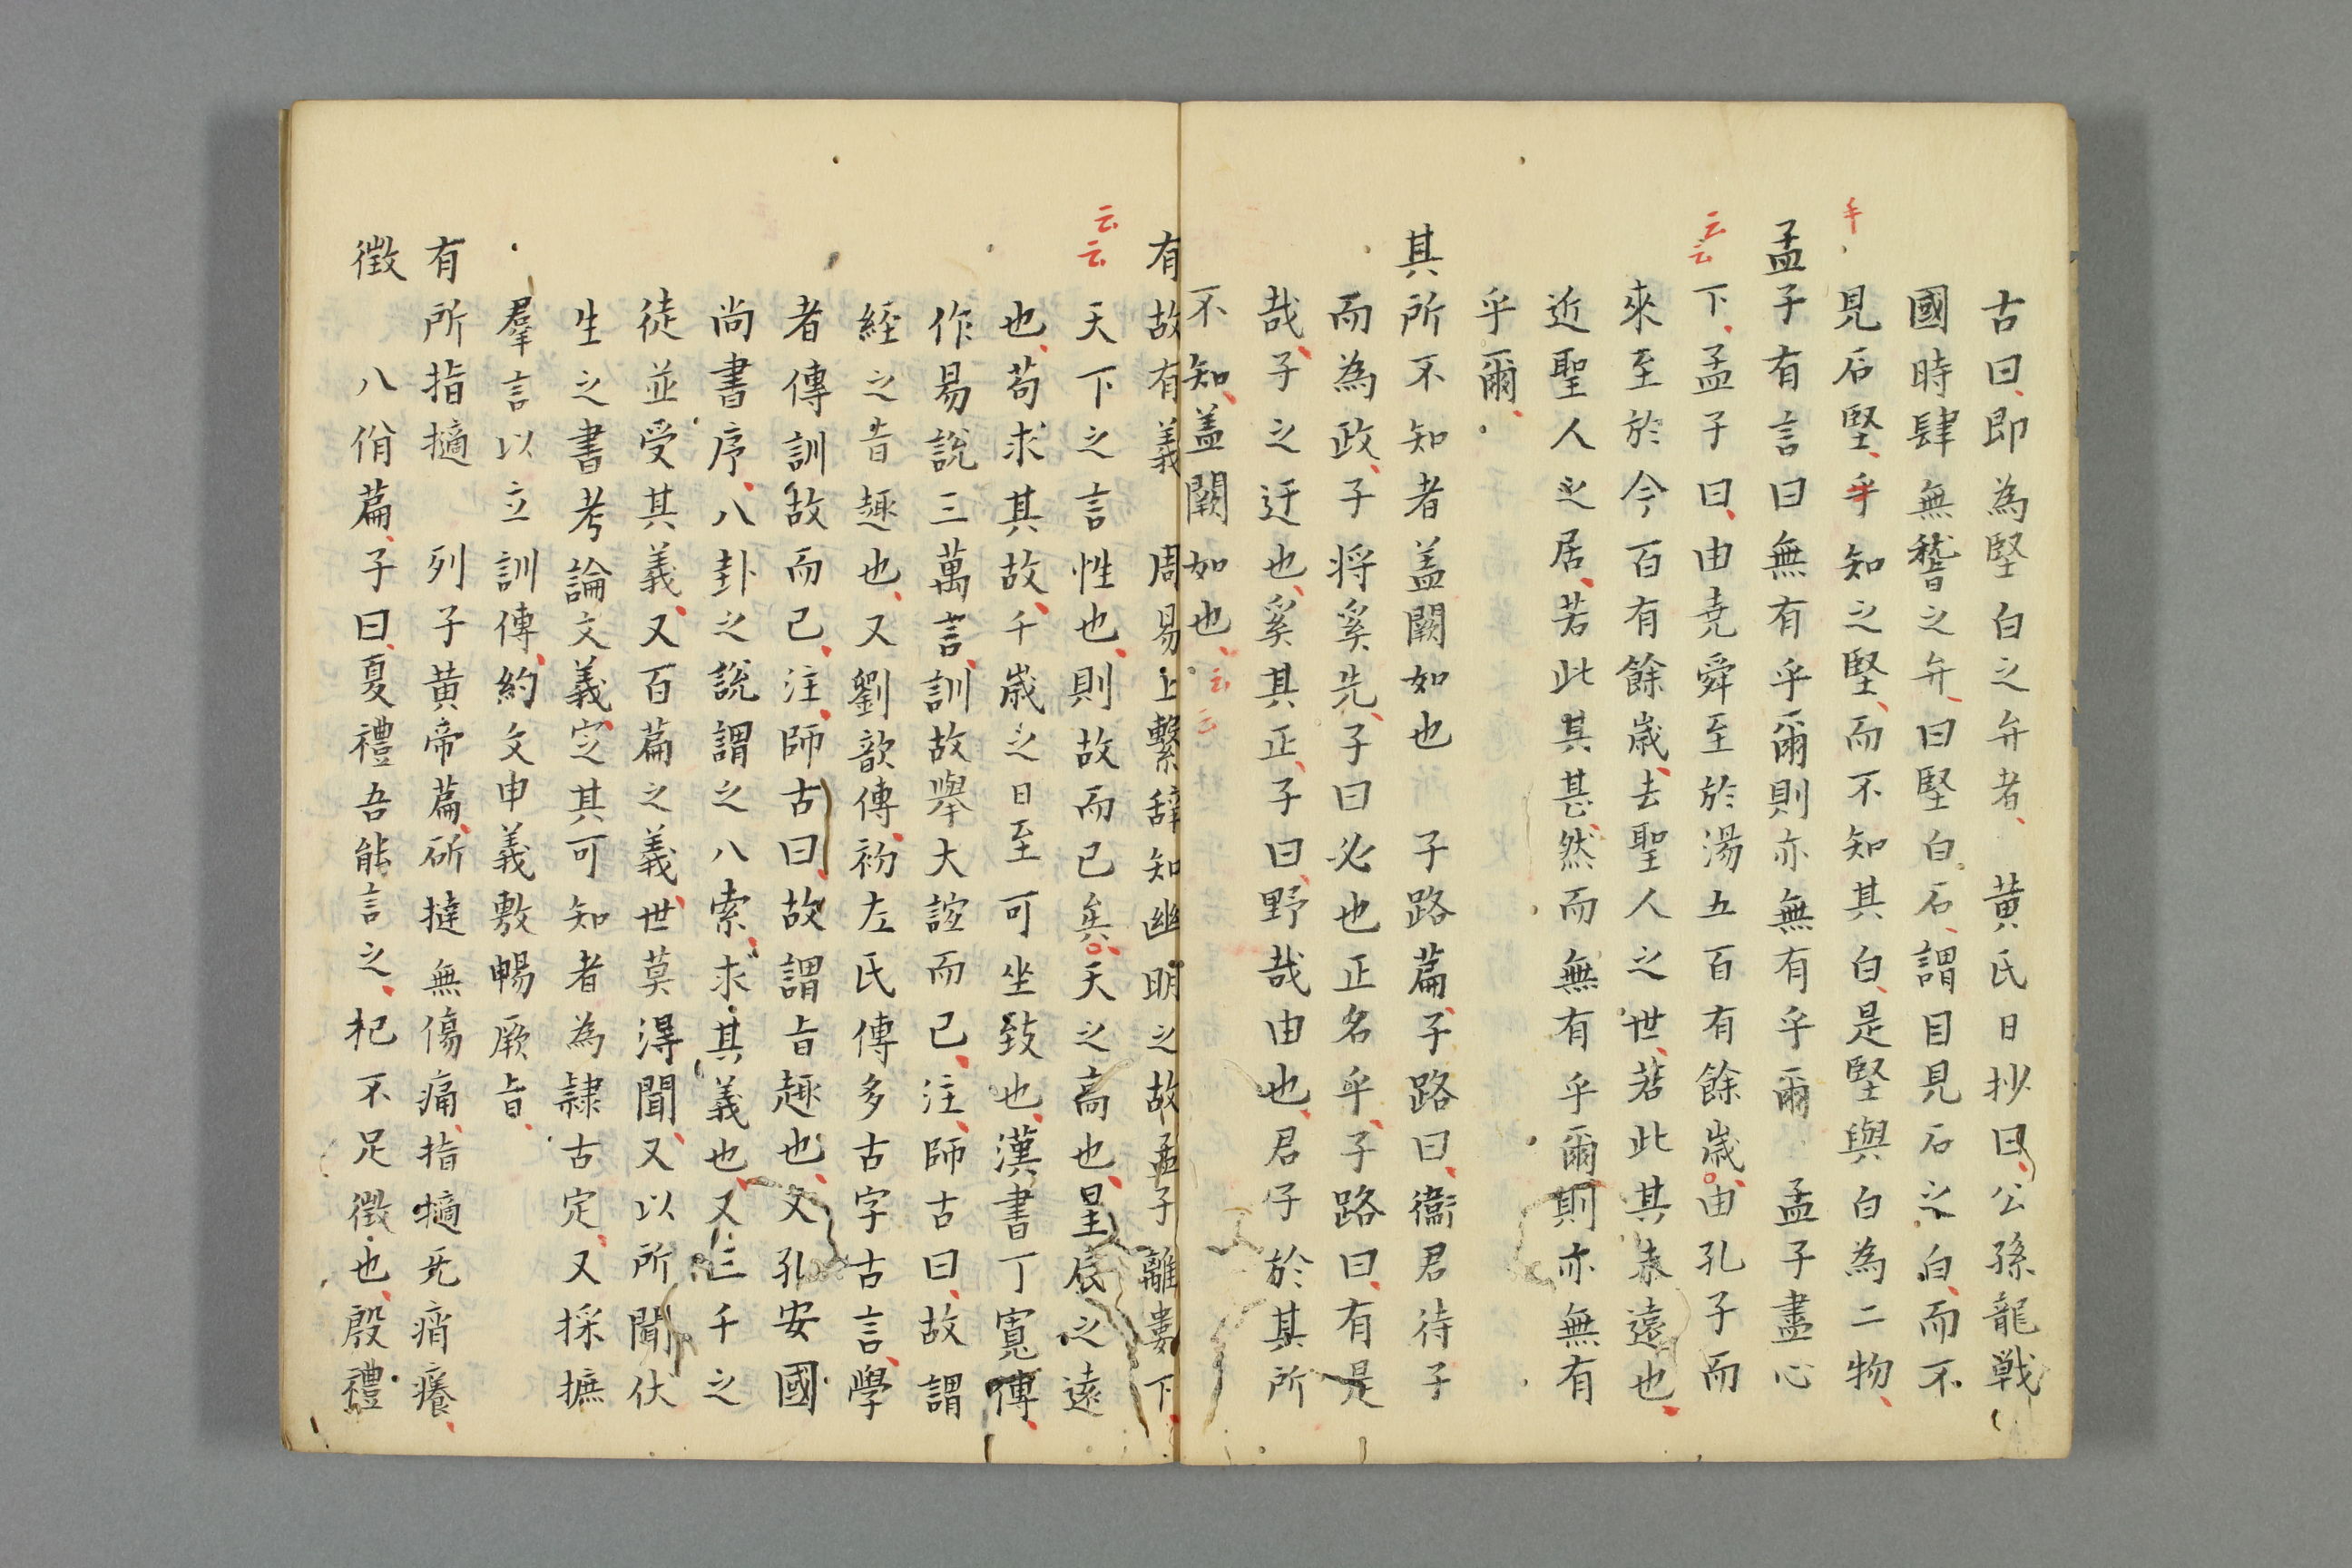 古曰即為堅白之弁者黄氏日抄曰公孫龍戦
國時肆無稽之弁曰堅白石謂目見石之白而不
手
見石堅手知之堅而不知其白是堅與白為二物
孟子有言曰無有乎爾則亦無有乎爾 孟子盡心
云云
下孟子曰由尭舜至於湯五百有餘歳由孔子而
來至於今百有餘歳去聖人之世若此其未遠也
近聖人之居若此其甚然而無有乎爾則亦無有
乎爾
其所不知者盖闕如也 子路篇子路曰衞君待子
而為政子将奚先子曰必也正名乎子路曰有是
哉子之迂也奚其正子曰野哉由也君子於其所
不知盖闕如也云云
有故有義 周易上繫辞知幽明之故孟子離婁下
云云
天下之言性也則故而已矣天之高也星辰之遠
也苟求其故千歳之日至可坐致也漢書丁寛傳
作易說三萬言訓故舉大誼而已注師古曰故謂
経之旨趣也又劉歆傳初左氏傳多古字古言學
者傳訓故而已注師古曰故謂旨趣也又孔安國
尚書序八卦之說謂之八索求其義也又三千之
徒並受其義又百篇之義世莫得聞又以所聞伏
生之書考論文義定其可知者為隷古定又採摭
羣言以立訓傳約文申義敷暢厥旨
有所指擿 列子黄帝篇斫撻無傷痛指擿旡痟癢
徴 八佾篇子曰夏禮吾能言之杞不足徴也殷禮